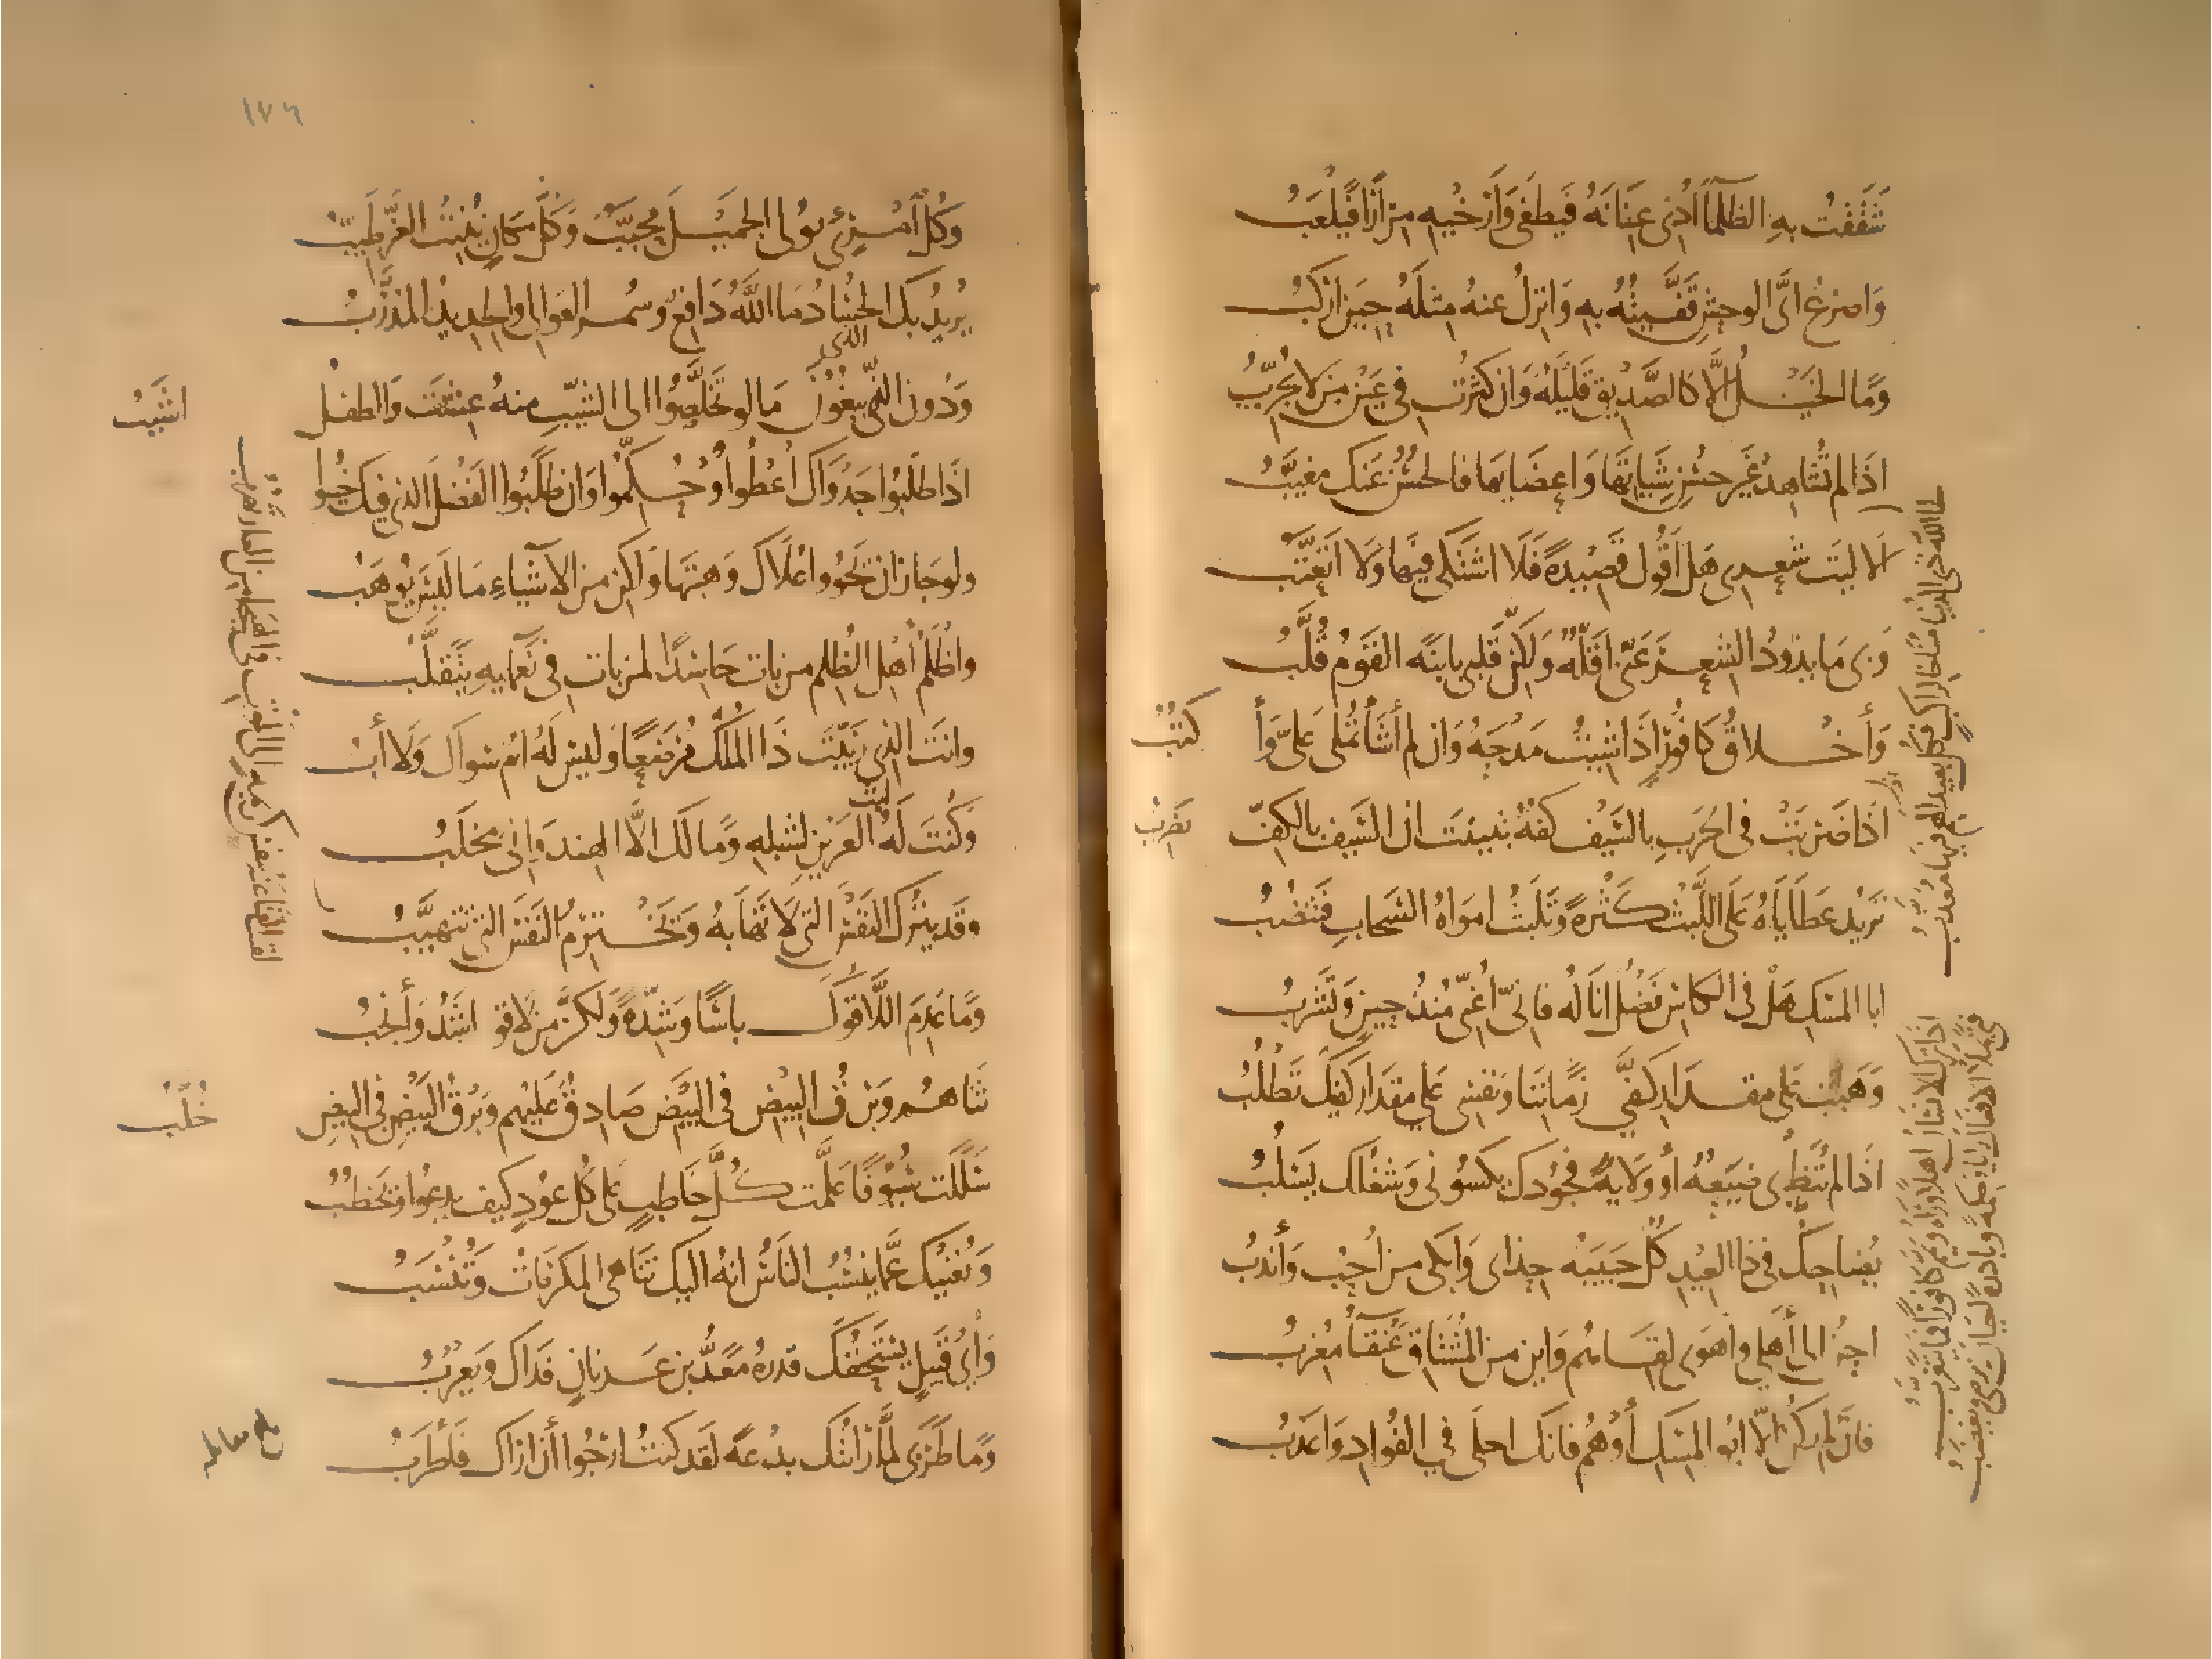 شققت به الظلماء أدنى عنانه فيطغى وأرخيه مرارا فيلعب
واصرع اى الوحش قفيته به وانزل عنه مثله حين اركب
وما الخيل الا كالصديق قليلة وان كثرت في عين من لا يجرب
اذا لم تشاهد غير حسن شياتها واعضايها فالحسن عنك مغيب
الا ليت شعرى هل اقول قصيدة فلا اشتكى فيها ولا اتعتب
وبى ما يذود الشعر عنى اقله ولكن قلبى يابنه القوم قلب
وأخلاق كافور اذا شيت مدحه وان لم أشأ تملى على وأ
كتب
اذا ضربت فى الحرب بالسيف كفه تبينت ان السيف بالكف
تضرب
تزيد عطاياه على اللبث كثرة وتلبث امواه السحاب فتنضب
ابا المسك هل فى الكاس فضل اناله فانى أغنى منذ حين وتشرب
وهبت على مقدار كفى زماننا ونفسى على مقدار كفيك تطلب
اذا لم تنط بى ضيعة أو ولاية فجودك يكسونى وشغلك يسلب
يضاحك فى ذا العيد كل حبيبه حذاى وابكى من أحب وأندب
احن الى أهلى واهوى لقاءهم واين من المشتاق عنقاء مغرب
فان لم يكن الا ابو المسك أو هم فانك احلى في الفواد واعذب
لحا الله ذى الدنيا مناخا لراكب فكل بعيد الهم فيها معذب
١٧٦
وكل أمرئ يولى الجميل محبب وكل مكان ينبت العز طيب
يريد بك الحساد ما الله دافع وسمر العوالى والحديد المذرب
ودون الذى يبغون ما لو تخلصوا الى الشيب منه عشت والطفل
اشيب
اذا طلبوا جدواك أعطوا وحكموا وان طلبوا الفضل الذى فيك خيبوا
ولو جاز ان تحووا علاك وهبتها ولكن من الاشياء ما ليس يوهب
واظلم أهل الظلم من بات حاسدا لمن بات فى نعمايه يتقلب
وانت الذى ربيت ذا الملك مرضعا وليس له ام سواك ولا أب
وكنت له ليث العرين لشبله ومالك الا الهندوانى مخلب
وقد يترك النفس التى لا تهابه وتخترم النفس التى تتهيب
وما عدم اللاقوك باسا وشدة ولكن من لاقوا اشد وأنجب
ثناهم وبرق البيض فى البيض صادق عليهم وبرق البيض فى البيض
خلب
سللت سيوفا علمت كل خاطب على كل عود كيف يدعوا ويخطب
ويغنيك عما ينسب الناس انه اليك تناهى المكرمات وتنسب
وأى قبيل يستحقك قدره معد بن عدنان فداك ويعرب
وما طربى لما رأيتك بدعة لقد كنت ارجوا أن اراك فأطرب